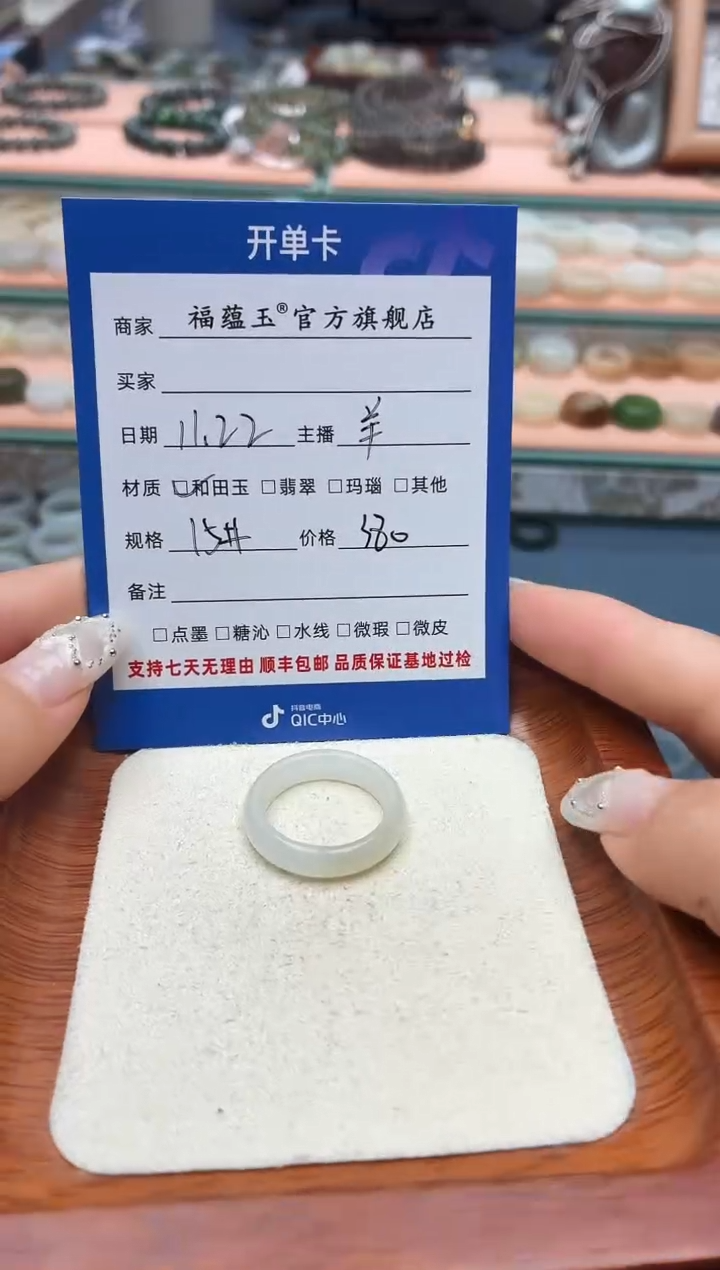 开单卡
商家 福蕴玉®官方旗舰店
买家
日期 11.22 主播 羊
材质 □和田玉 □翡翠 □玛瑙 □其他
规格 15# 价格 380
备注
□点墨 □糖沁 □水线 □微瑕 □微皮
支持七天无理由 顺丰包邮 品质保证基地过检
抖音电商
QIC中心